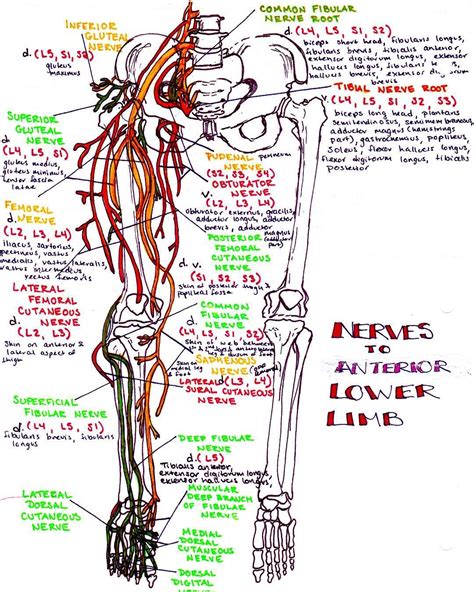 COMMON FIBULAR
NERVE ROOT
d. (L4, L5, S1, S2)
biceps short head, fibularis longus,
fibularis brevis, tibialis anterior,
extensor digitorum longus, extensor
hallucis longus, fibularis
hallucis brevis, extensor
brevis
TIBIAL NERVE ROOT
(L4, L5, S1, S2, S3)
biceps long head, plantaris
semitendinosus, semimembranosus,
adductor magnus (hamstrings
part), gastrocnemius, popliteus,
soleus, flexor hallucis longus,
flexor digitorum longus, tibialis
posterior
INFERIOR
GLUTEAL
NERVE
d. (L5, S1, S2)
gluteus
maximus
SUPERIOR
GLUTEAL
NERVE
d.
(L4, L5, S1)
gluteus medius,
gluteus minimus,
tensor fascia
latae
FEMORAL
NERVE
d.
(L2, L3, L4)
iliacus, sartorius,
pectineus, vastus
medialis, vastus lateralis,
vastus intermedius
rectus femoris
LATERAL
FEMORAL
CUTANEOUS
NERVE
d.
(L2, L3)
skin on anterior &
lateral aspect of
thigh
PUDENAL perineum
NERVE
(S2, S3, S4)
OBTURATOR
NERVE
v.
(L2, L3, L4)
obturator externus, gracilis,
adductor longus, adductor
brevis, adductor
magnus
(adductor
part)
POSTERIOR
FEMORAL
CUTANEOUS
NERVE
d. (S1, S2, S3)
skin of posterior thigh &
popliteal fossa
COMMON
FIBULAR
NERVE
d.
(L4, L5, S1, S2)
skin of web between
SAPHENOUS
NERVE
skin on medial
leg & foot
(L3, L4)
LATERAL
SURAL CUTANEOUS
NERVE
SUPERFICIAL
FIBULAR NERVE
d. (L4, L5, S1)
fibularis brevis, fibularis
longus
DEEP FIBULAR
NERVE
d. (L5)
Tibialis anterior,
extensor digitorum longus,
extensor hallucis longus,
MUSCULAR
DEEP BRANCH
OF FIBULAR
NERVE
LATERAL
DORSAL
CUTANEOUS
NERVE
MEDIAL
DORSAL
CUTANEOUS
NERVE
DORSAL
DIGITAL
NERVE
NERVES
TO
ANTERIOR
LOWER
LIMB